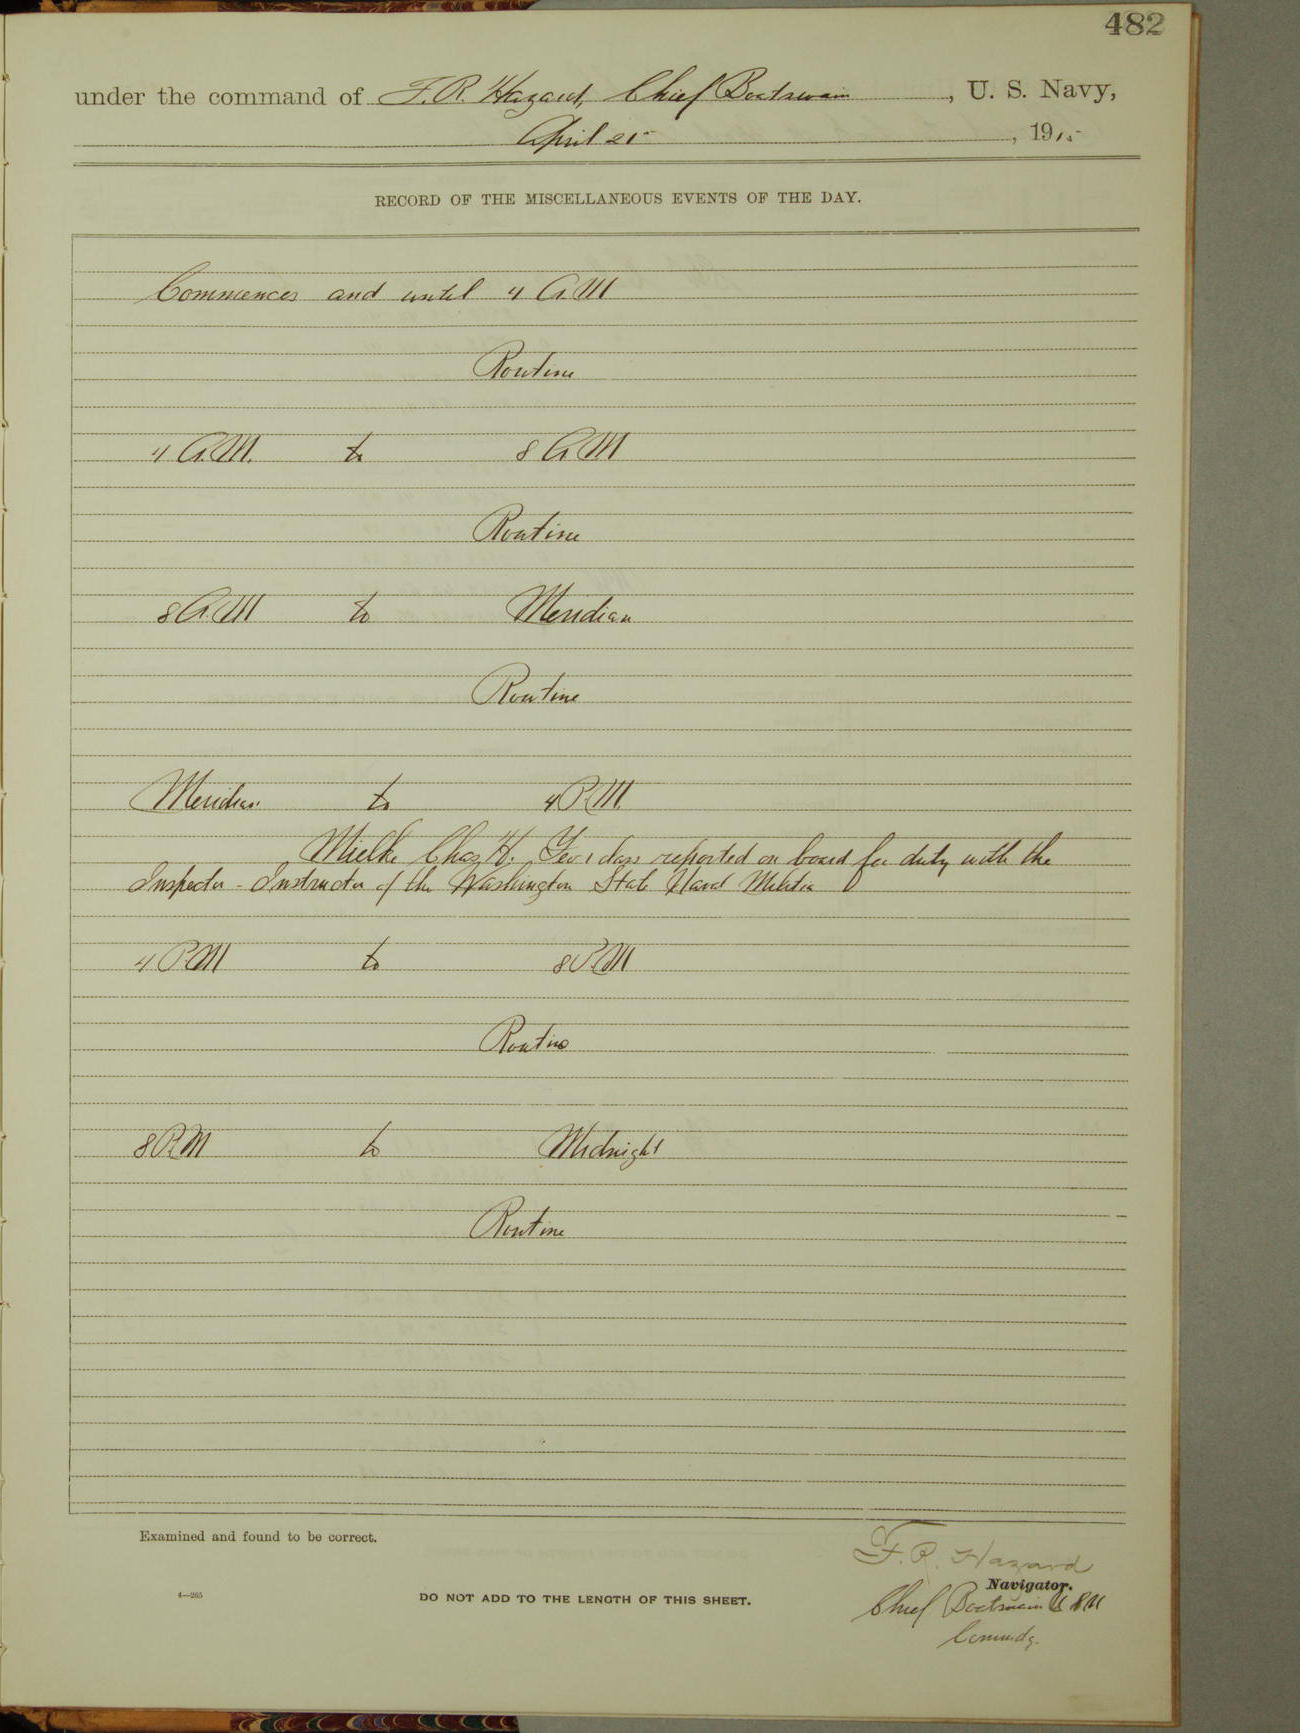 482
under the command of F. R. Hazard, Chief Boatswain, U. S. Navy,
April 25, 1915
RECORD OF THE MISCELLANEOUS EVENTS OF THE DAY.
Commences and until 4 A.M
Routine
4 A.M. to 8 A.M
Routine
8 A.M to Meridian
Routine
Meridian to 4 P.M.
Mielke Chas H. Yeo 1 class reported on board for duty with the
Inspector - Instructor of the Washington State Naval Militia
4 P.M to 8 P.M
Routine
8 P.M to Midnight
Routine
Examined and found to be correct.
F. R. Hazard
Navigator.
Chief Boatswain U S N
Commdg.
4—265
DO NOT ADD TO THE LENGTH OF THIS SHEET.